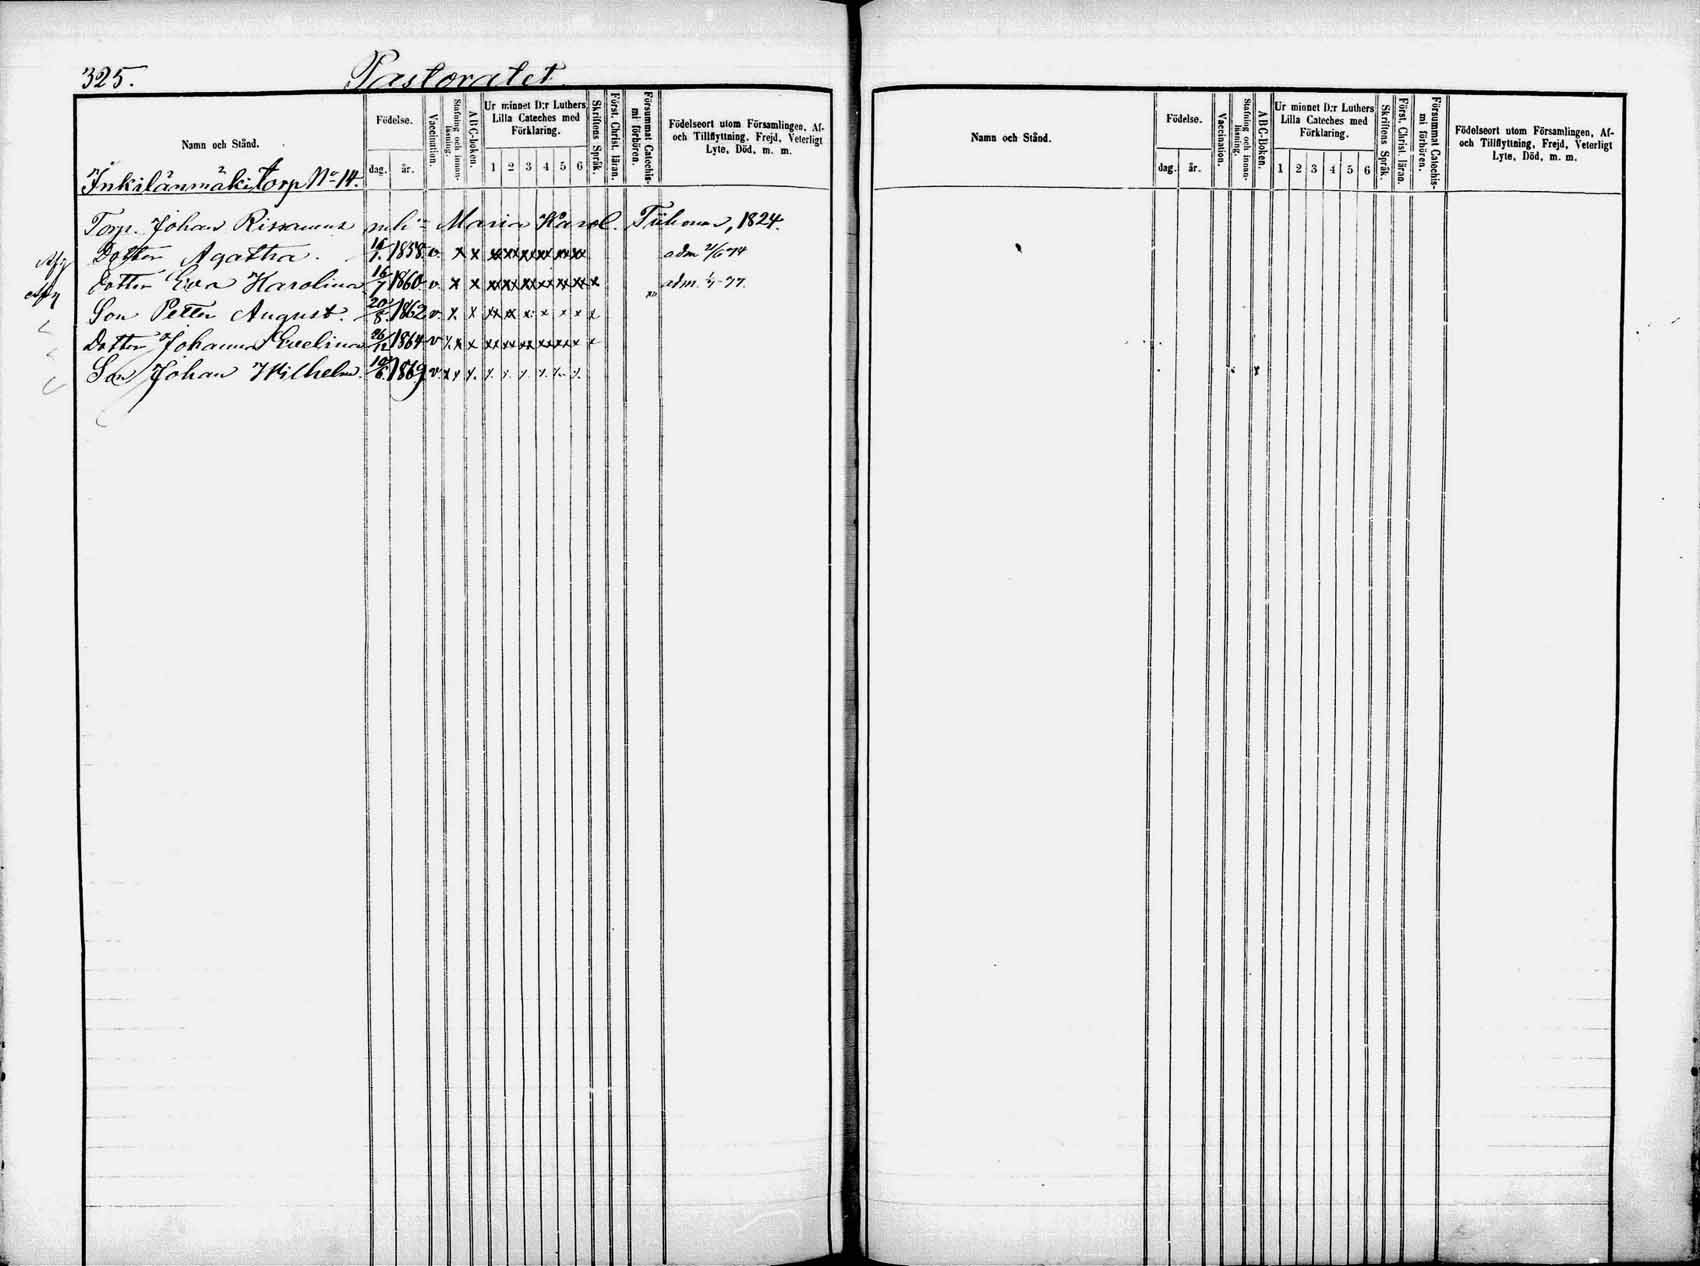 325. Pastoratet
Namn och Stånd.
Födelse.
dag.
år.
Vaccination.
Stafning och innan-
läsning.
ABC-Boken.
Ur minnet D:r Luthers
Lilla Cateches med
Förklaring.
1 2 3 4 5 6
Skriftens Språk.
Först. Christ. läran.
Försummat Catechis-
mi förhören.
Födelseort utom Församlingen, Af-
och Tillflyttning, Frejd, Veterligt
Lyte, Död, m. m.
Inkilänmäki torp No 14.
Torp. Johan Rissanens Maria Karol. Tiihonen, 1824.
Dotter Agatha. 1858 v. x x xx xx xx xx xx xx adm 21/6 74
Dotter Eva Karolina 16/7 1860 v. x x xx xx xx xx xx xx x adm. 1/7 77.
Son Petter August. 20/8 1862 v. x x xx xx x x x x x
Dotter Johanna Evelina 26/12 1864 v x x x xx xx xx xx xx x x
Son Johan Wilhelm. 10/6 1869 v. x x x x x x x x x
Namn och Stånd.
Födelse.
dag.
år.
Vaccination.
Stafning och innan-
läsning.
ABC-Boken.
Ur minnet D:r Luthers
Lilla Cateches med
Förklaring.
1 2 3 4 5 6
Skriftens Språk.
Först. Christ. läran.
Försummat Catechis-
mi förhören.
Födelseort utom Församlingen, Af-
och Tillflyttning, Frejd, Veterligt
Lyte, Död, m. m.